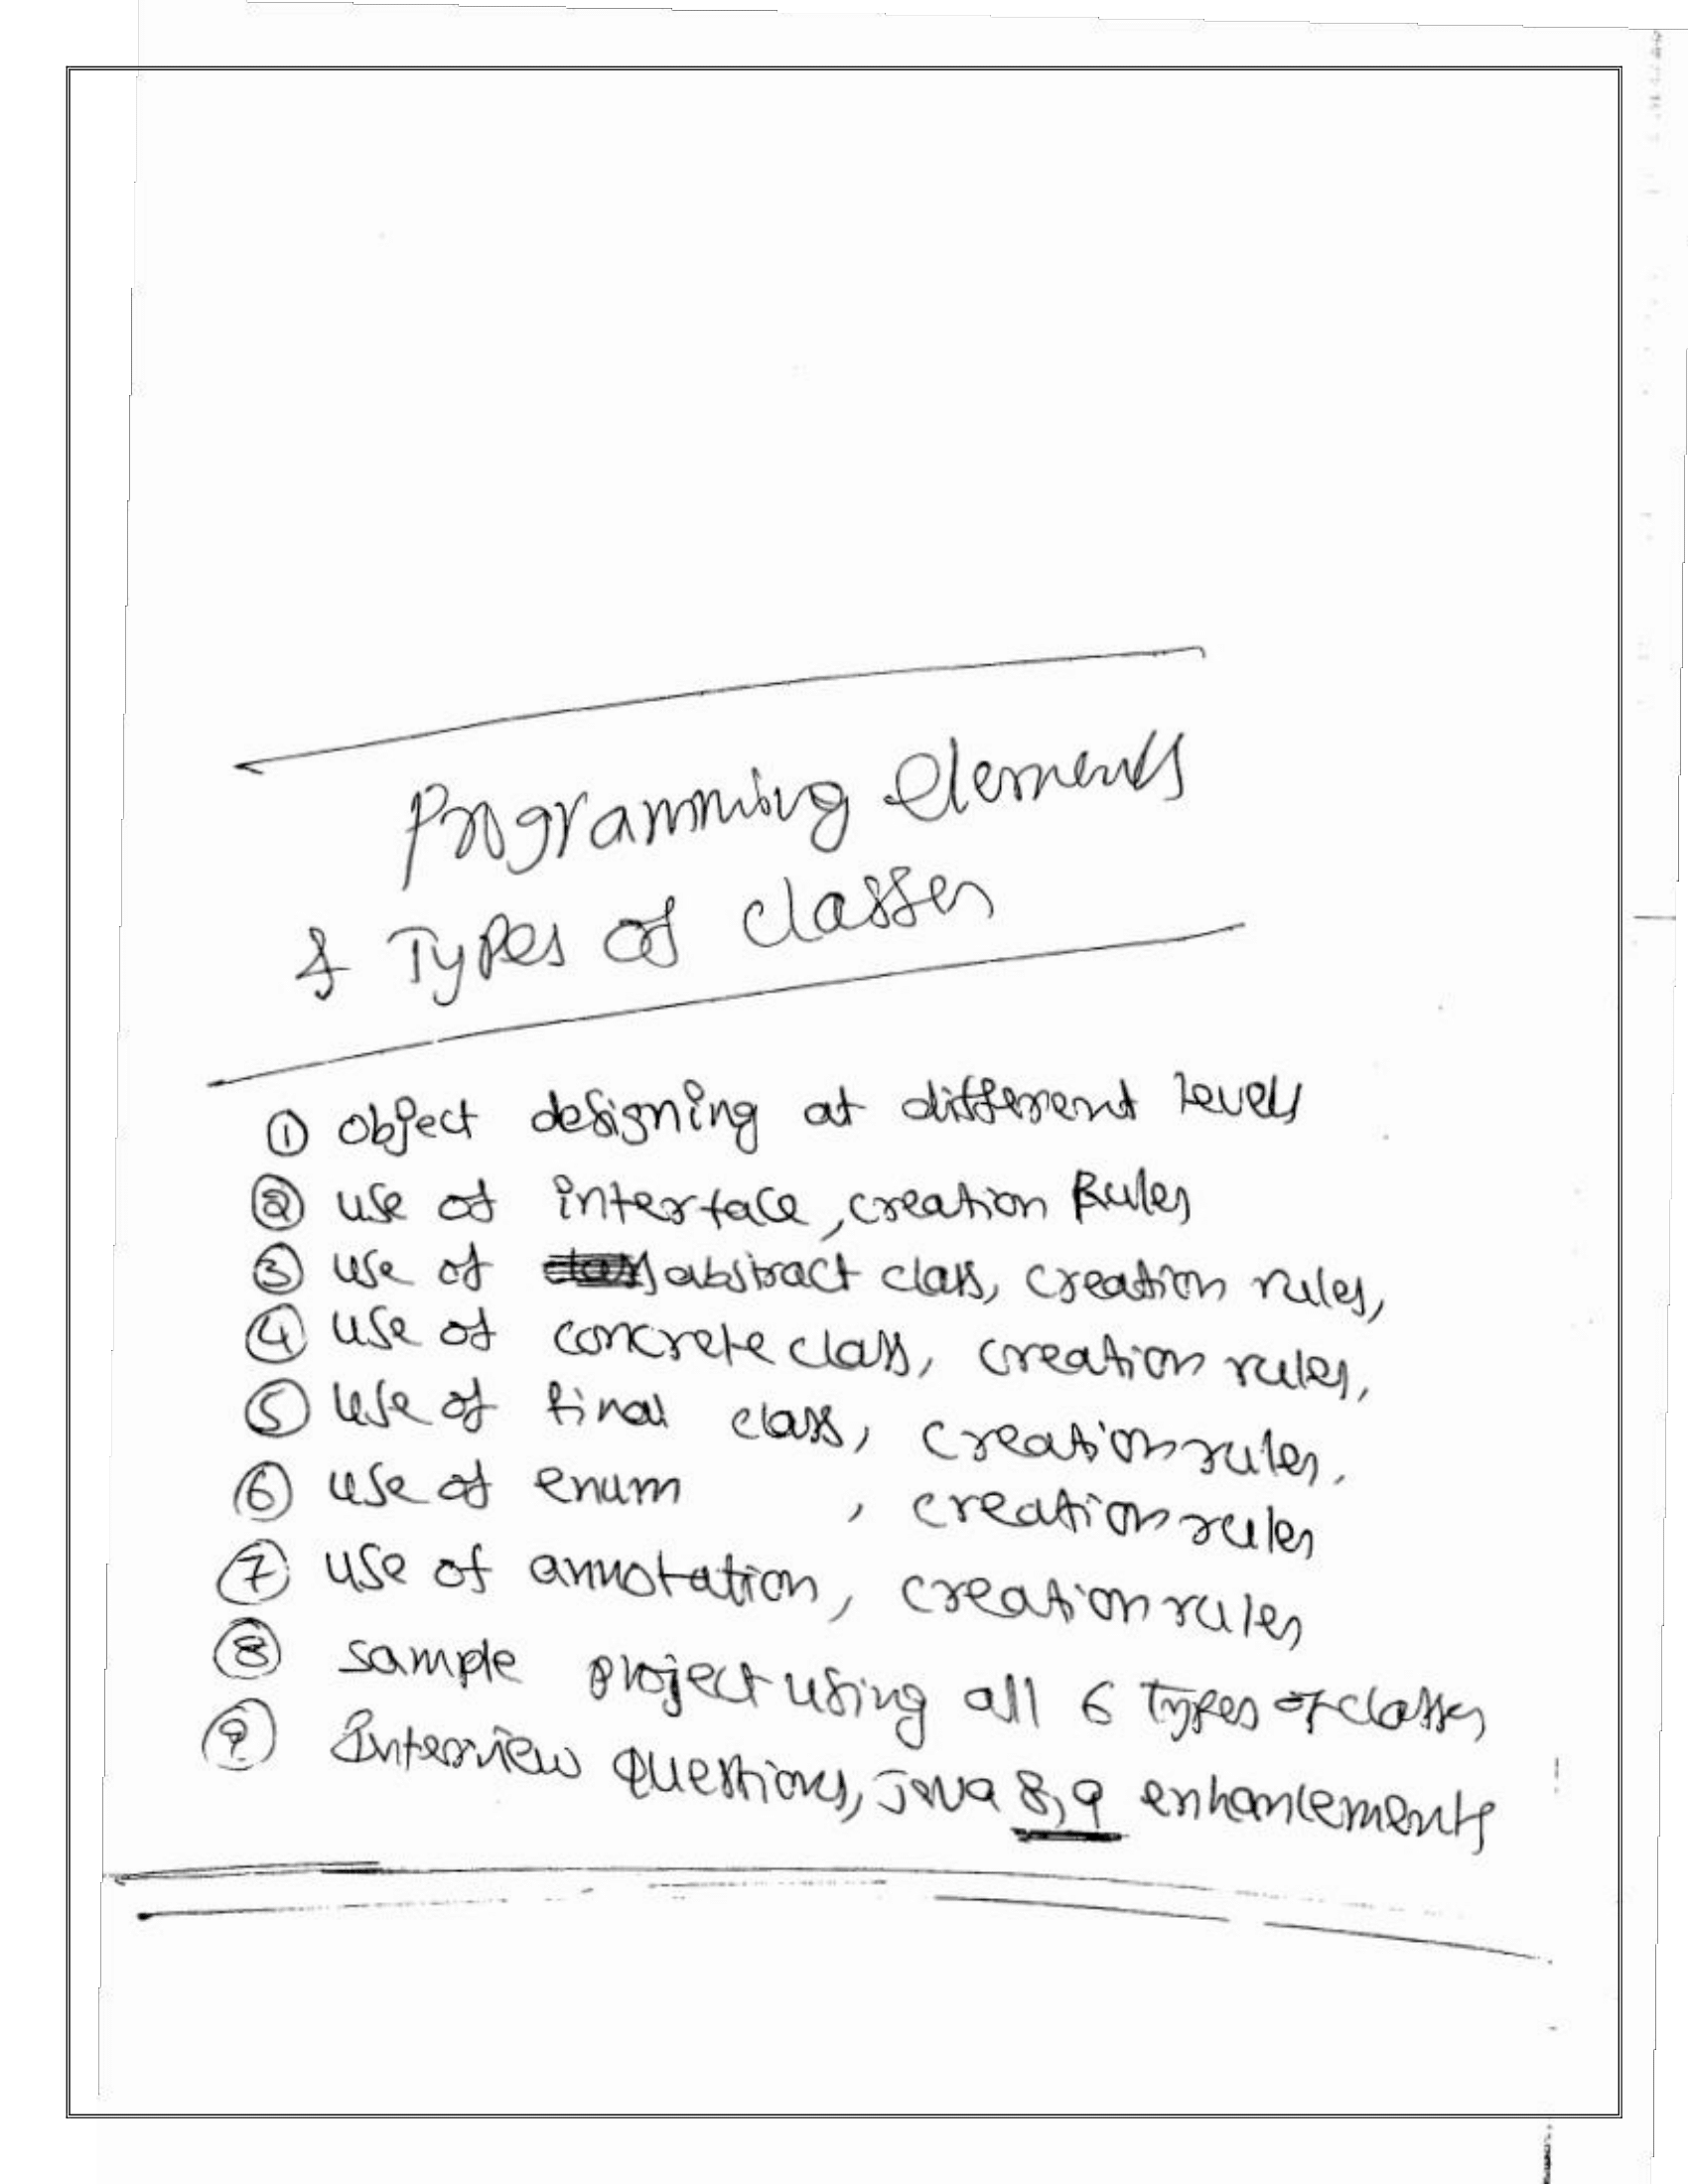 Programming Elements
& Types of classes
① object designing at different levels
② use of interface, creation Rules
③ use of abstract class, creation rules,
④ use of concrete class, creation rules,
⑤ use of final class, creation rules,
⑥ use of enum , creation rules
⑦ use of annotation, creation rules
⑧ sample project using all 6 types of classes
⑨ Interview Questions, Java 8,9 enhancements